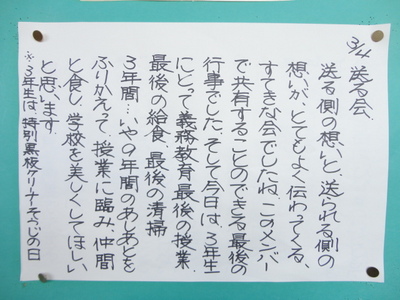 3/4 送る会、
送る側の想いと、送られる側の
想いが、とてもよく伝わってくる、
すてきな会でしたね。このメンバー
で共有することのできる最後の
行事でした。そして今日は、3年生
にとって義務教育最後の授業、
最後の給食、最後の清掃
3年間…いや9年間のあしあとを
ふりかえって、授業に臨み、仲間
と食し、学校を美しくしてほしい
と思います。
※3年生は、特別黒板クリーナーそうじの日